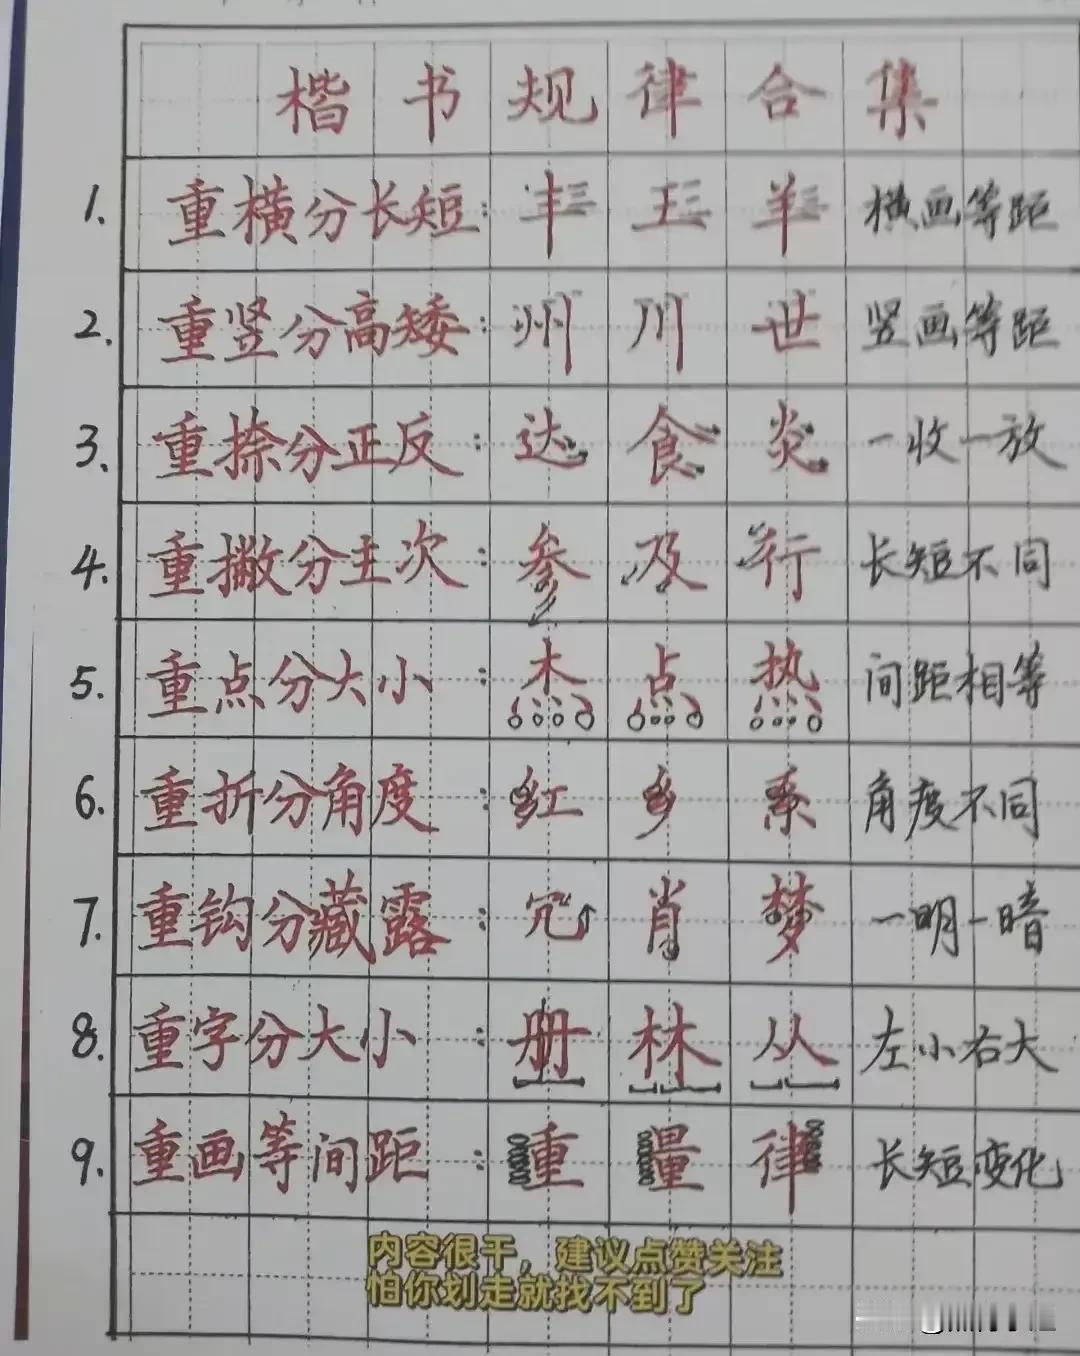 楷书规律合集
1. 重横分长短: 丰 王 羊 横画等距
2. 重竖分高矮: 州 川 世 竖画等距
3. 重捺分正反: 达 食 炎 一收一放
4. 重撇分主次: 参 及 行 长短不同
5. 重点分大小: 杰 点 热 间距相等
6. 重折分角度: 红 乡 系 角度不同
7. 重钩分藏露: 冗 肖 梦 一明一暗
8. 重字分大小: 册 林 从 左小右大
9. 重画等间距: 重 量 律 长短变化
内容很干，建议点赞关注
怕你划走就找不到了